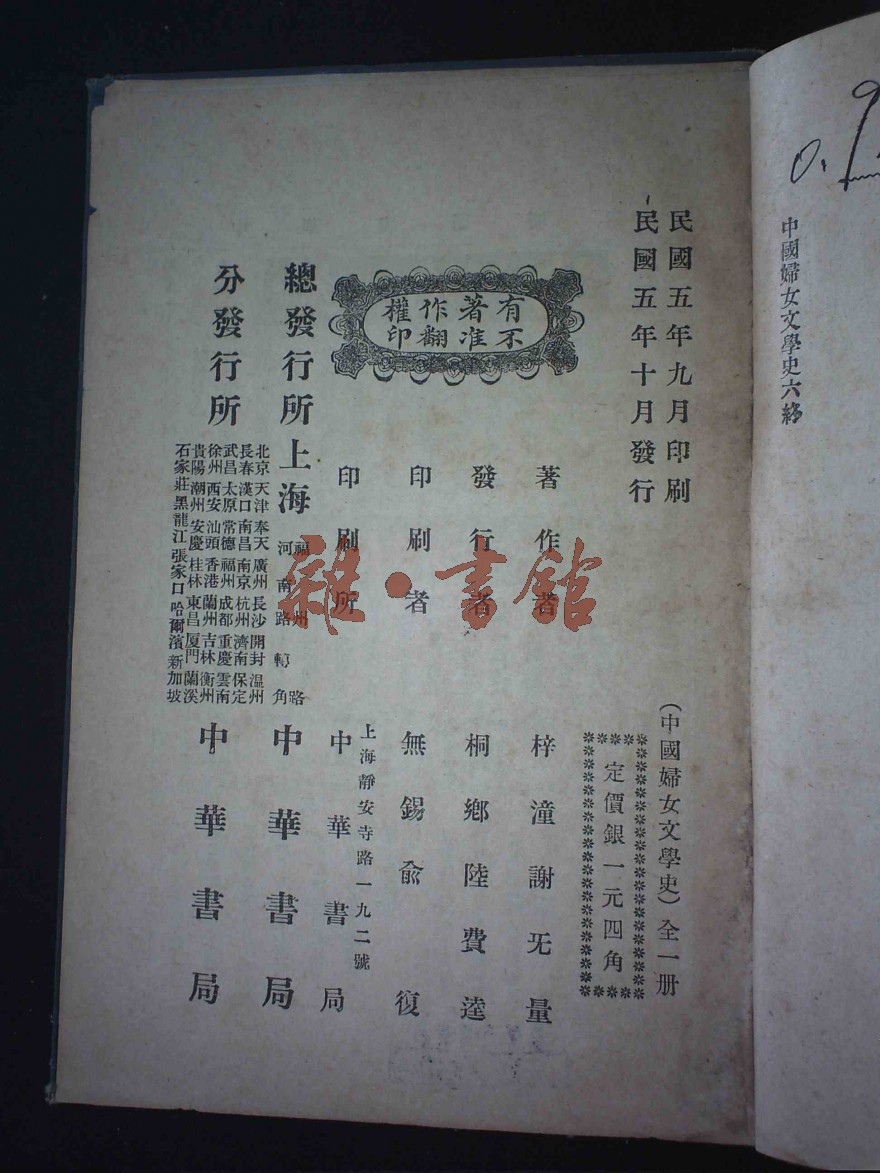 中國婦女文學史六終
民國五年九月印刷
民國五年十月發行
(中國婦女文學史)全一册
定價銀一元四角
有著作權
不准翻印
著作者 梓潼謝旡量
發行者 桐鄉陸費逵
印刷者 無錫俞復
印刷所 上海靜安寺路一九二號
中華書局
總發行所 上海 福州路
河南路轉角
中華書局
分發行所
北京天津奉天廣州長沙開封温州
長春漢口南昌南京杭州濟南保定
武昌太原常德福州成都重慶雲南
徐州西安汕頭香港蘭州吉林衡州
貴陽潮州安慶桂林東昌厦門蘭溪
石家莊黑龍江張家口哈爾濱新加坡
中華書局
雜·書館